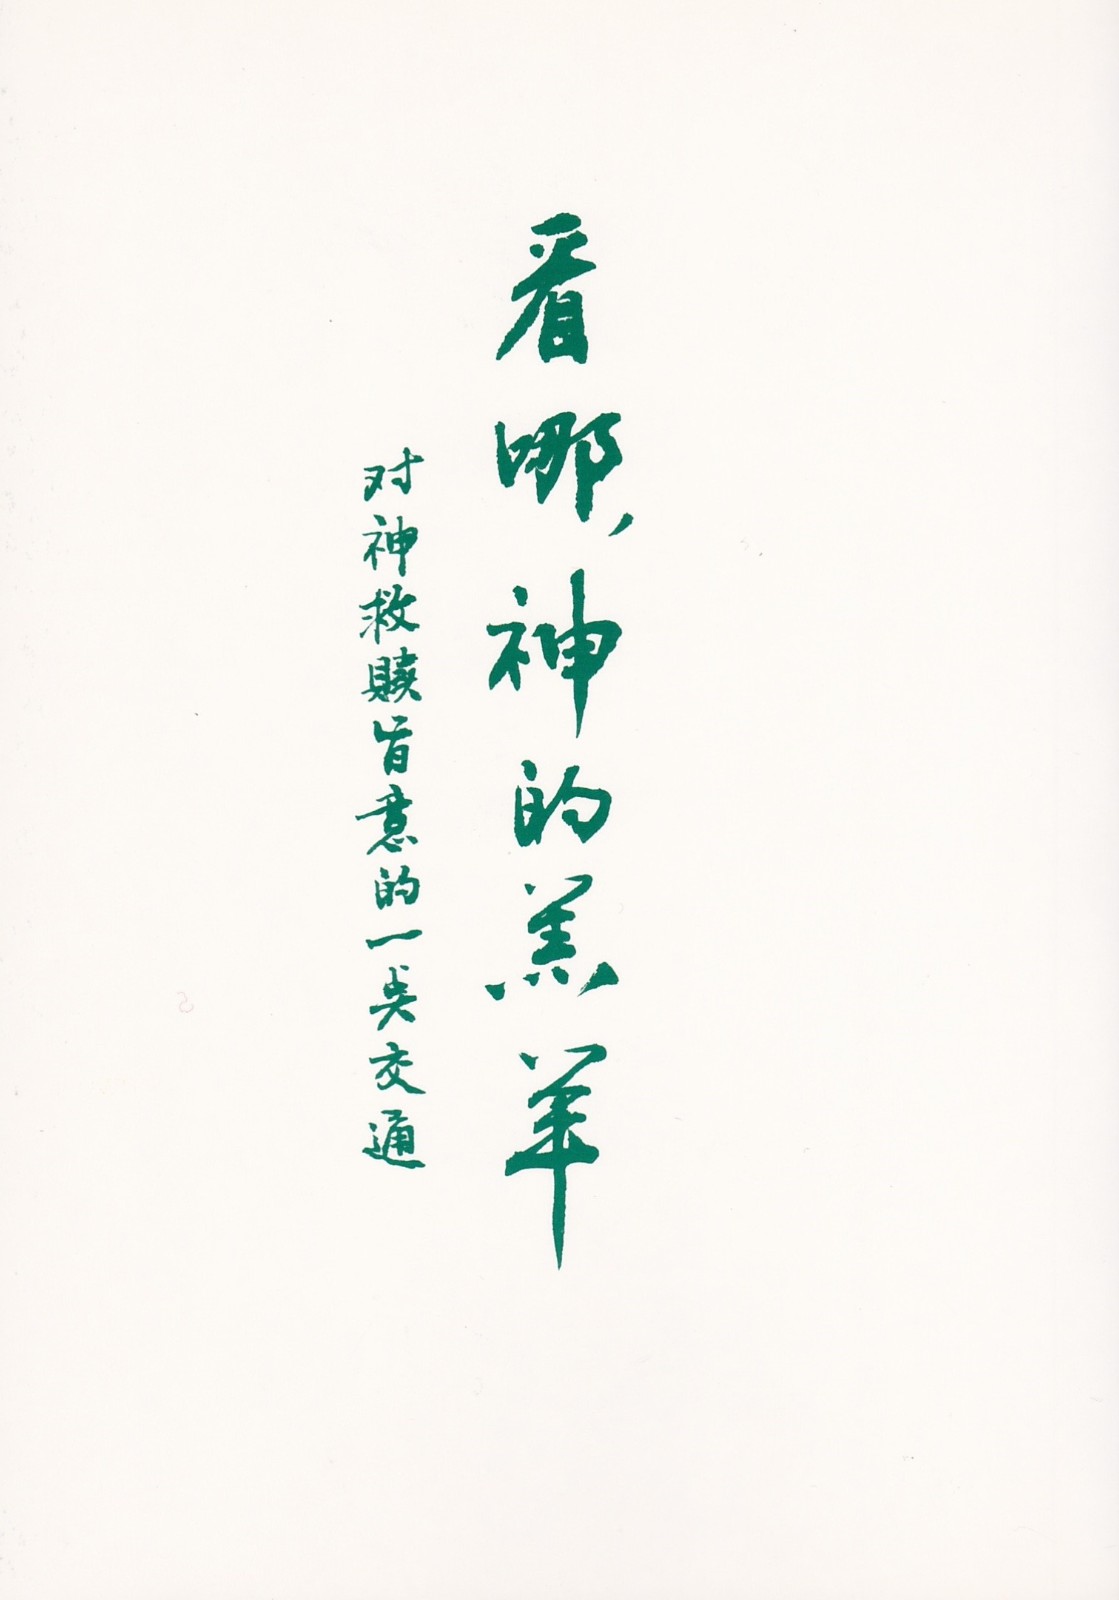 看哪，神的羔羊
对神救赎旨意的一点交通